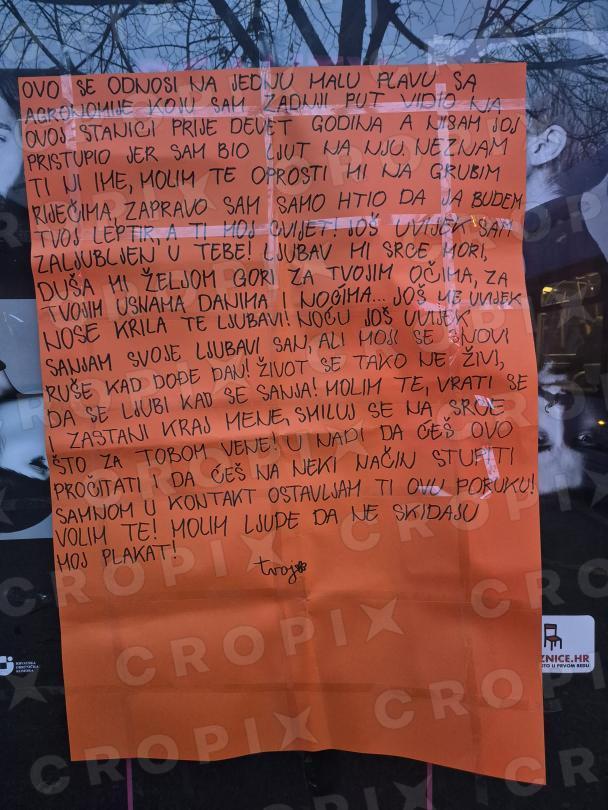 OVO SE ODNOSI NA JEDNU MALU PLAVU SA
AGRONOMIJE KOJU SAM ZADNJI PUT VIDIO NA
OVOJ STANICI PRIJE DEVET GODINA A NISAM JOJ
PRISTUPIO JER SAM BIO LJUT NA NJU. NEZNAM
TI NI IME, MOLIM TE OPROSTI MI NA GRUBIM
RIJEČIMA, ZAPRAVO SAM SAMO HTIO DA JA BUDEM
TVOJ LEPTIR, A TI MOJ CVIJET! JOŠ UVIJEK SAM
ZALJUBLJEN U TEBE! LJUBAV MI SRCE MORI,
DUŠA MI ŽELJOM GORI ZA TVOJIM OČIMA, ZA
TVOJIM USNAMA DANIMA I NOĆIMA... JOŠ ME UVIJEK
NOSE KRILA TE LJUBAVI! NOĆU JOŠ UVIJEK
SANJAM SVOJE LJUBAVI SAN, ALI MOJI SE SNOVI
RUŠE KAD DOĐE DAN! ŽIVOT SE TAKO NE ŽIVI,
DA SE LJUBI KAD SE SANJA! MOLIM TE, VRATI SE
I ZASTANI KRAJ MENE, SMILUJ SE NA SRCE
ŠTO ZA TOBOM VENE! U NADI DA ĆEŠ OVO
PROČITATI I DA ĆEŠ NA NEKI NAČIN STUPITI
SAMNOM U KONTAKT OSTAVLJAM TI OVU PORUKU!
VOLIM TE! MOLIM LJUDE DA NE SKIDAJU
MOJ PLAKAT!
tvoj
ZNICE.HR
CROPIX